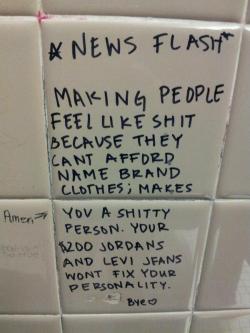 *NEWS FLASH*
MAKING PEOPLE
FEEL LIKE SHIT
BECAUSE THEY
CANT AFFORD
NAME BRAND
CLOTHES; MAKES
Amen→
YOU A SHITTY
PERSON. YOUR
$200 JORDANS
AND LEVI JEANS
WONT FIX YOUR
PERSONALITY.
Bye♡